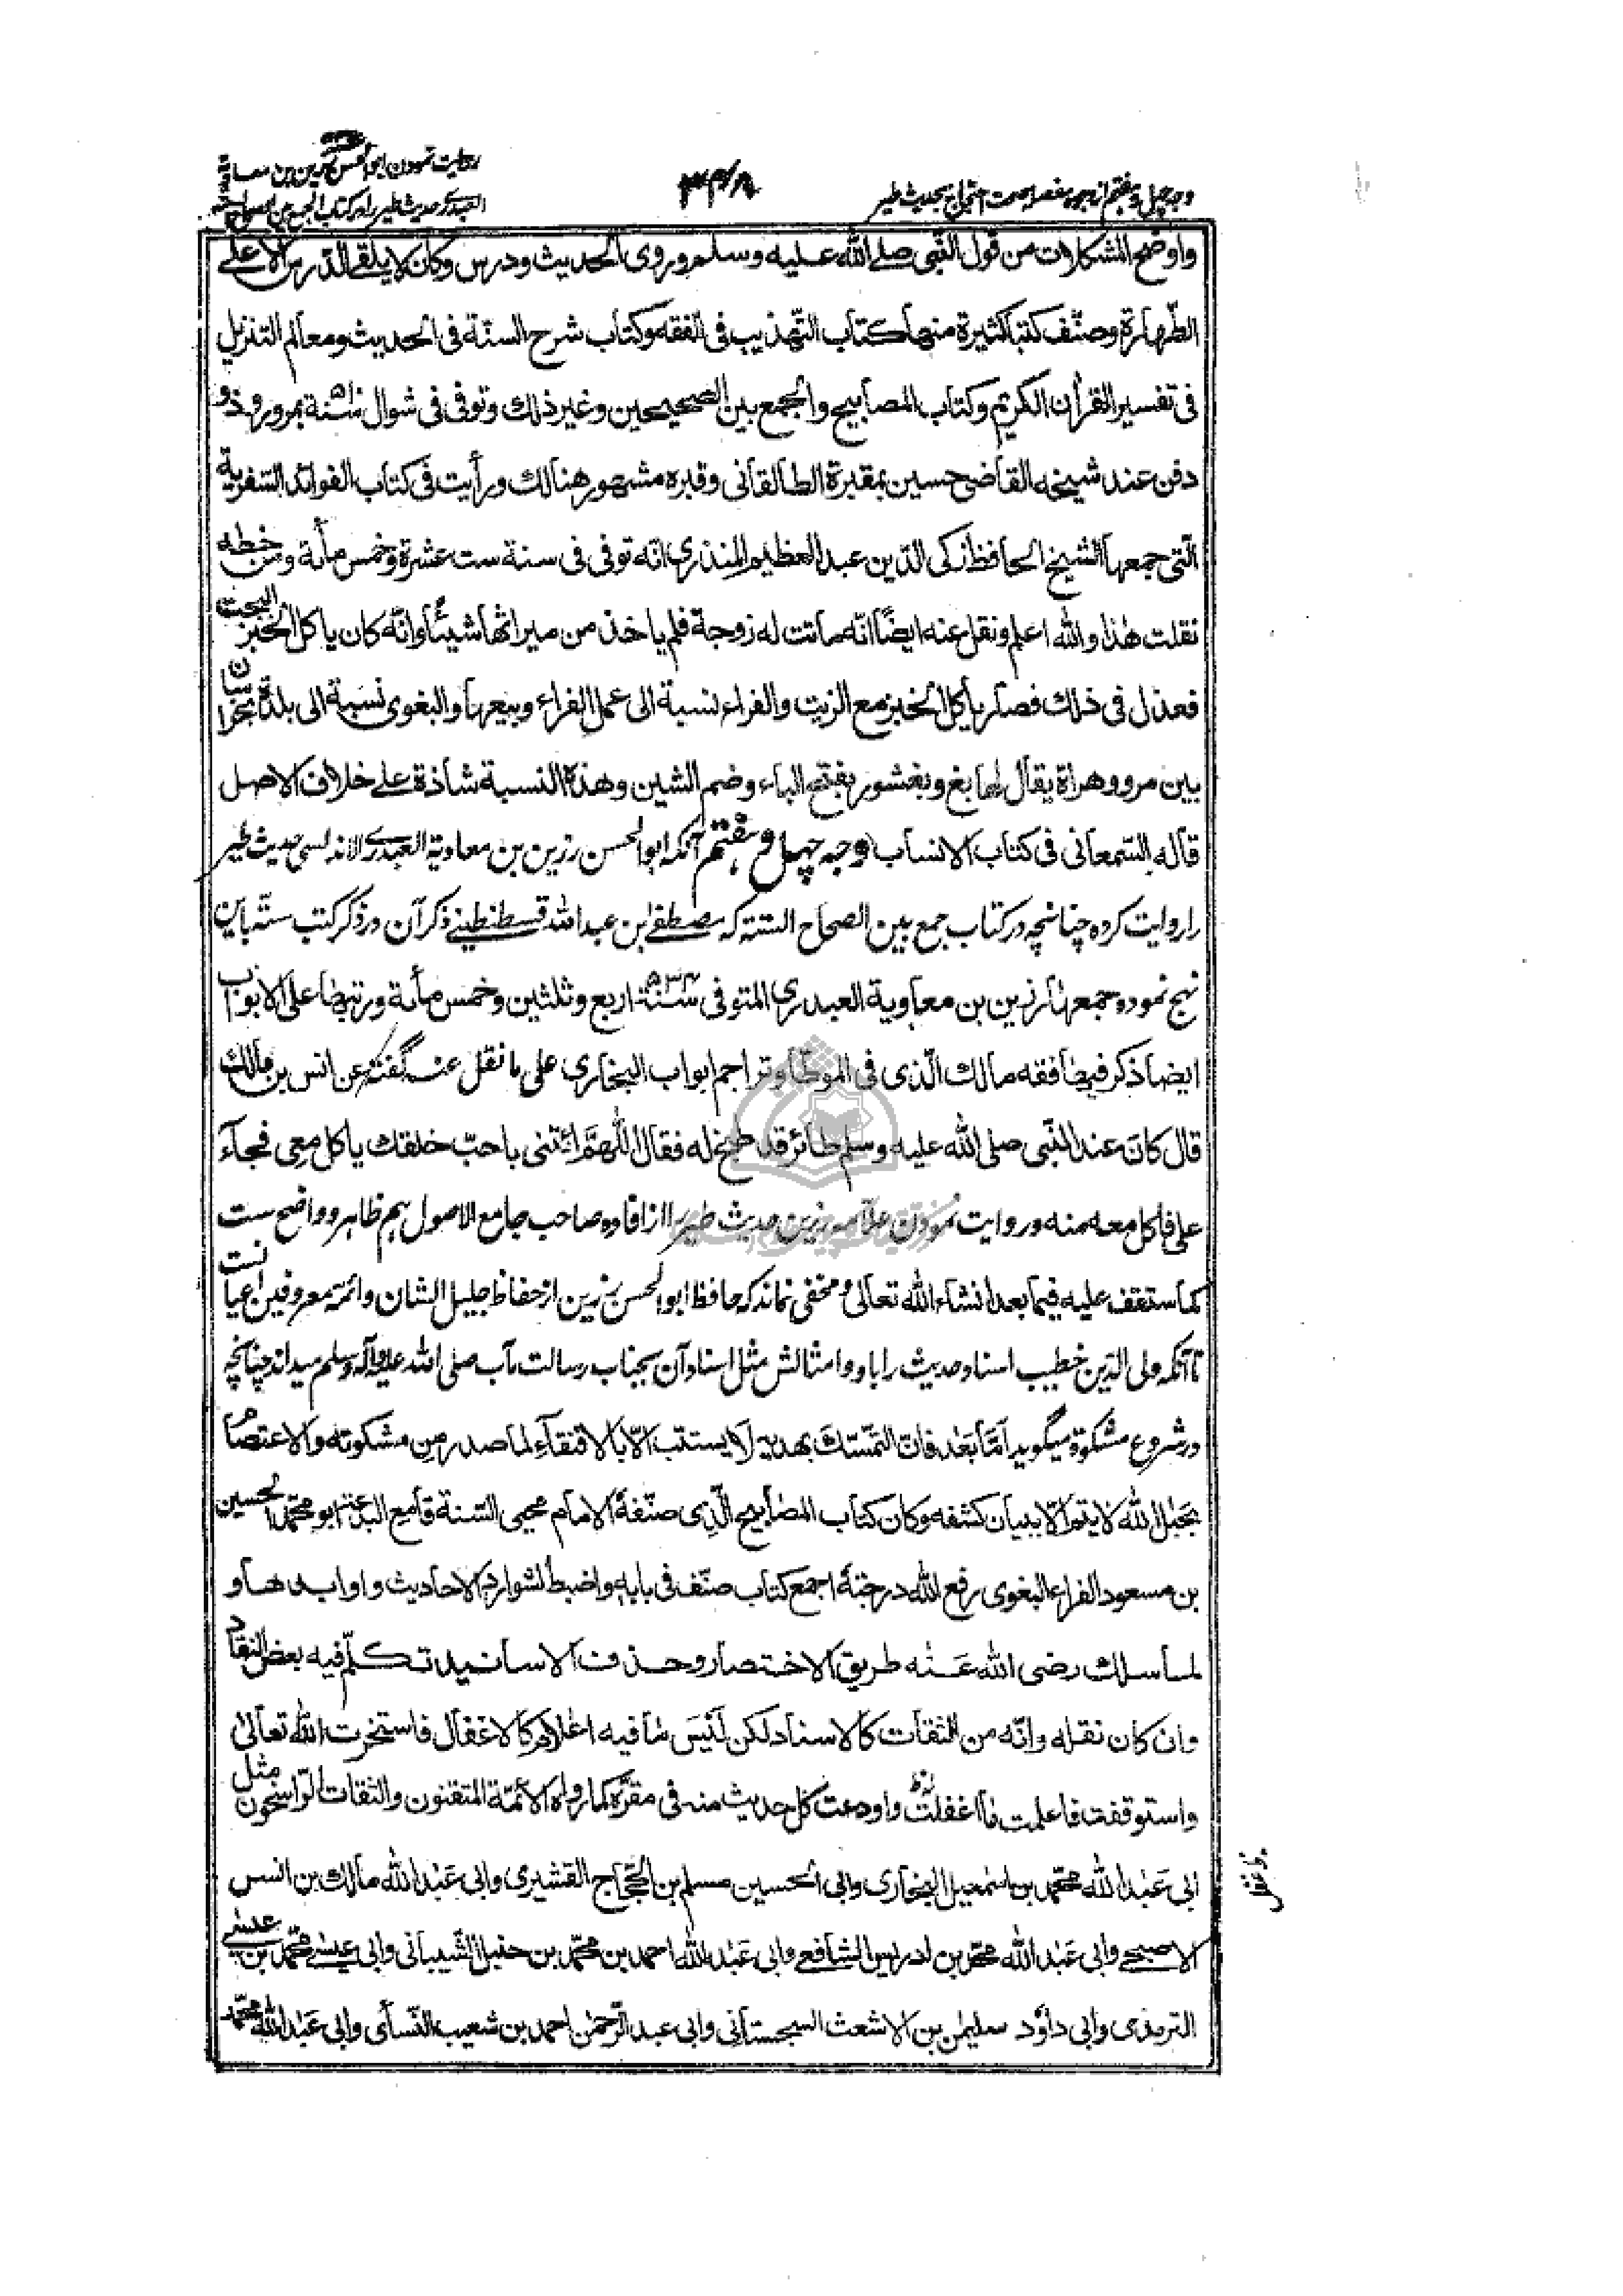 وجه چهل و هفتم از وجوه حدیث طیر
۳۴۸
روایت نمودن ابو الحسن رزین بن معاویة
العبدری حدیث طیر را در کتاب الجمع بین الصحاح الستة
واوضح المشکلات من قول النّبی صلے الله علیه وسلم وروی الحدیث ودرس وکان لا یلقی الدّرس الا علی
الطّهارة وصنّف کتبا کثیرة منها کتاب التهذیب فی الفقه وکتاب شرح السنّة فی الحدیث ومعالم التنزیل
فی تفسیر القرأن الکریم وکتاب المصابیح والجمع بین الصحیحین وغیر ذلك وتوفی فی شوال سنة ۵۱۰ بمرورّوذ و
دفن عند شیخه القاضی حسین بمقبرة الطالقانی وقبره مشهور هنالك ورأیت فی کتاب الفوائد السّفریة
الّتی جمعها الشیخ الحافظ زکی الدّین عبد العظیم المنذری انّه توفی فی سنة ست عشرة وخمس مأة ومن خطه
نقلت هذا والله اعلم ونقل عنه ایضًا انّه ماتت له زوجة فلم یاخذ من میراثها شیئًا وانّه کان یاکل الخبز البحت
فعذل فی ذلك فصار یأکل الخبز مع الزیت والفراء نسبة الی عمل الفراء وبیعها والبغوی نسبة الی بلدة بخراسان
بین مرو وهراة یقال لها بغ وبغشور بفتح الباء وضم الشین وهذه النسبة شاذة علی خلاف الاصل
قاله السّمعانی فی کتاب الانساب وجه چهل و هفتم آنکه ابو الحسن رزین بن معاویة العبدری الاندلسی حدیث طیر
را روایت کرده چنانچه در کتاب جمع بین الصحاح الستة که مصطفی بن عبد الله قسطنطینی ذکر آن در ذکر کتب ستّه باین
نهج نموده وجمعها رزین بن معاویة العبدری المتوفی سنة ۵۳۴ اربع وثلثین وخمس مأة ورتبها علی الابواب
ایضا ذکر فیها فقه مالك الّذی فی الموطّا وتراجم ابواب البخاری علی ما نقل عنه گفته عن انس بن مالك
قال کان عند النّبی صلی الله علیه وسلم طائر قد طبخ له فقال اللّهمّ ائتنی باحبّ خلقك یاکل معی فجآء
علی فاکل معه منه وروایت نمودن علامه رزین حدیث طیر را از افاده صاحب جامع الاصول هم ظاهر و واضح ست
کما ستقف علیه فیما بعد انشاء الله تعالی ومخفی نماند که حافظ ابو الحسن رزین از حفاظ جلیل الشان وائمه معروفین اعیانست
تا آنکه ولی الدّین خطیب اسناد حدیث را باو وامثالش مثل اسناد آن بجناب رسالت مآب صلی الله علیه وآله وسلم میداند چنانچه
در شروع مشکوة میگوید امّا بعد فان التمسّك بهدیه لا یستتب الّا بالاقتفآء لما صدر من مشکوته والاعتصام
بحبل الله لا یتم الّا ببیان کشفه وکان کتاب المصابیح الّذی صنّفه الامام محیی السّنة قامع البدعة ابو محمّد الحسین
بن مسعود الفراء البغوی رفع الله درجته اجمع کتاب صنّف فی بابه واضبط لشوارد الاحادیث واوابدها و
لما سلك رضی الله عنه طریق الاختصار وحذف الاسانید تکلّم فیه بعض النقاد
وان کان نقله وانّه من الثقات کالاسناد لکن لیس ما فیه اعلام کالاغفال فاستخرت الله تعالیٰ
واستوقفت فاعلمت ما اغفلت واودعت کل حدیث منه فی مقرّه کما رواه الأئمّة المتقنون والثقات الرّاسخون مثل
ابی عبد الله محمّد بن اسمعیل البخاری وابی الحسین مسلم بن الحجّاج القشیری وابی عبد الله مالك بن انس
الاصبحی وابی عبد الله محمّد بن ادریس الشافعی وابی عبد الله احمد بن محمّد بن حنبل الشّیبانی وابی عیسی محمّد بن عیسی
الترمذی وابی داؤد سلیمن بن الاشعث السجستانی وابی عبد الرّحمن احمد بن شعیب النّسأی وابی عبد الله محمّد